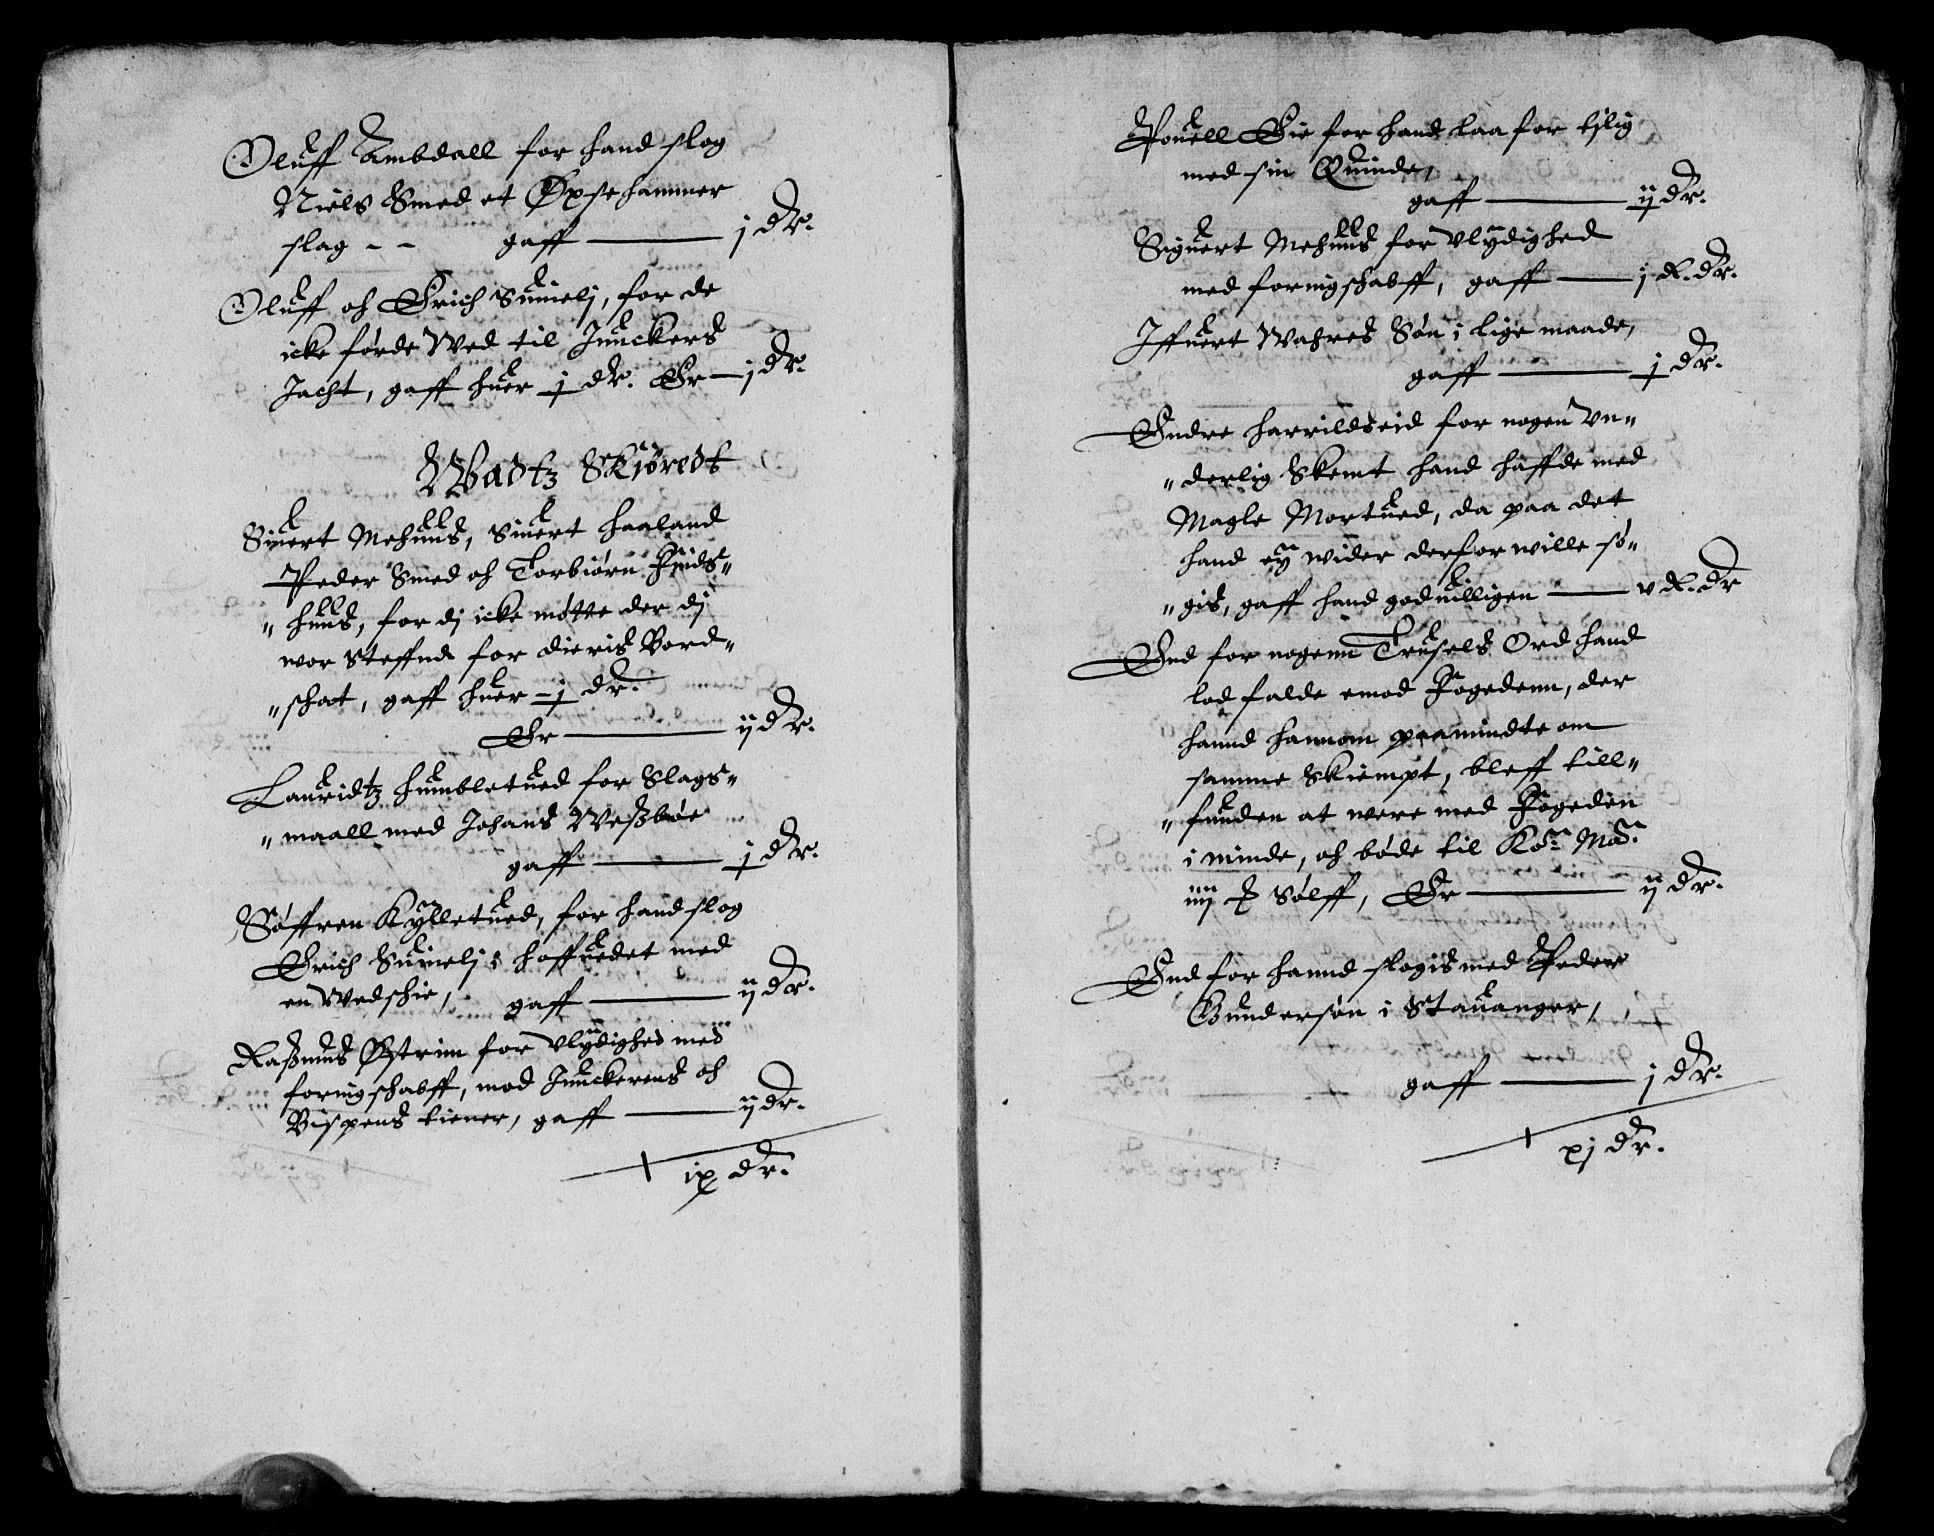 Oluff Ambdall for hand slog
Niels Smed et Øxsehammer
slag - - gaff — j dr.
Oluff och Erich Sumelj, for de
icke førde Wed til Junckers
Jacht, gaff huer j dr. Er — j dr.
Wadtz Skiøredt
Siuert Mehuus, Siuert Haaland
Peder Smed och Torbiørn Finds"
"huus, for dj icke møtte der dj
wor Steffnd for dieris Bord"
"schat, gaff huer — j dr.
Er — ij dr.
Lauridtz Humbletued for Slags"
"maall med Johans Weszbøe
gaff — j dr.
Søffren Kylletued, for hand slog
Erich Sumelj i hoffuedet med
en Wedschie, gaff — ij dr.
Rasmus Østrim for Vlydighed med
foringschabff, mod Junckerens och
Bispens tiener, gaff — ij dr.
ix dr.
Pouell Eie for hand laa for tjlig
med sin Quinde,
gaff — ij dr.
Siguert Mehuus for Vlydighed
med foringschabff, gaff — j R. dr.
Iffuert Wahres Søn i lige maade,
gaff — j dr.
Endre Harrildseid for nogen Vn"
"derlig Skemt hand haffde med
Magle Mortued, da paa det
hand ey wider derfor wille sø"
"gis, gaff hand goduilligen — v R. dr
End for nogenn Trusels Ord hand
lod falde emod Fogedenn, der
hannd hannom paamindte om
samme Skiempt, bleff till"
"funden at were med Fogeden
i minde, och bøde til Ko: Ma:
iiij Sølff, Er — ij dr.
End for hannd slogis med Peder
Gundersøn i Stauanger,
gaff — j dr.
xj dr.